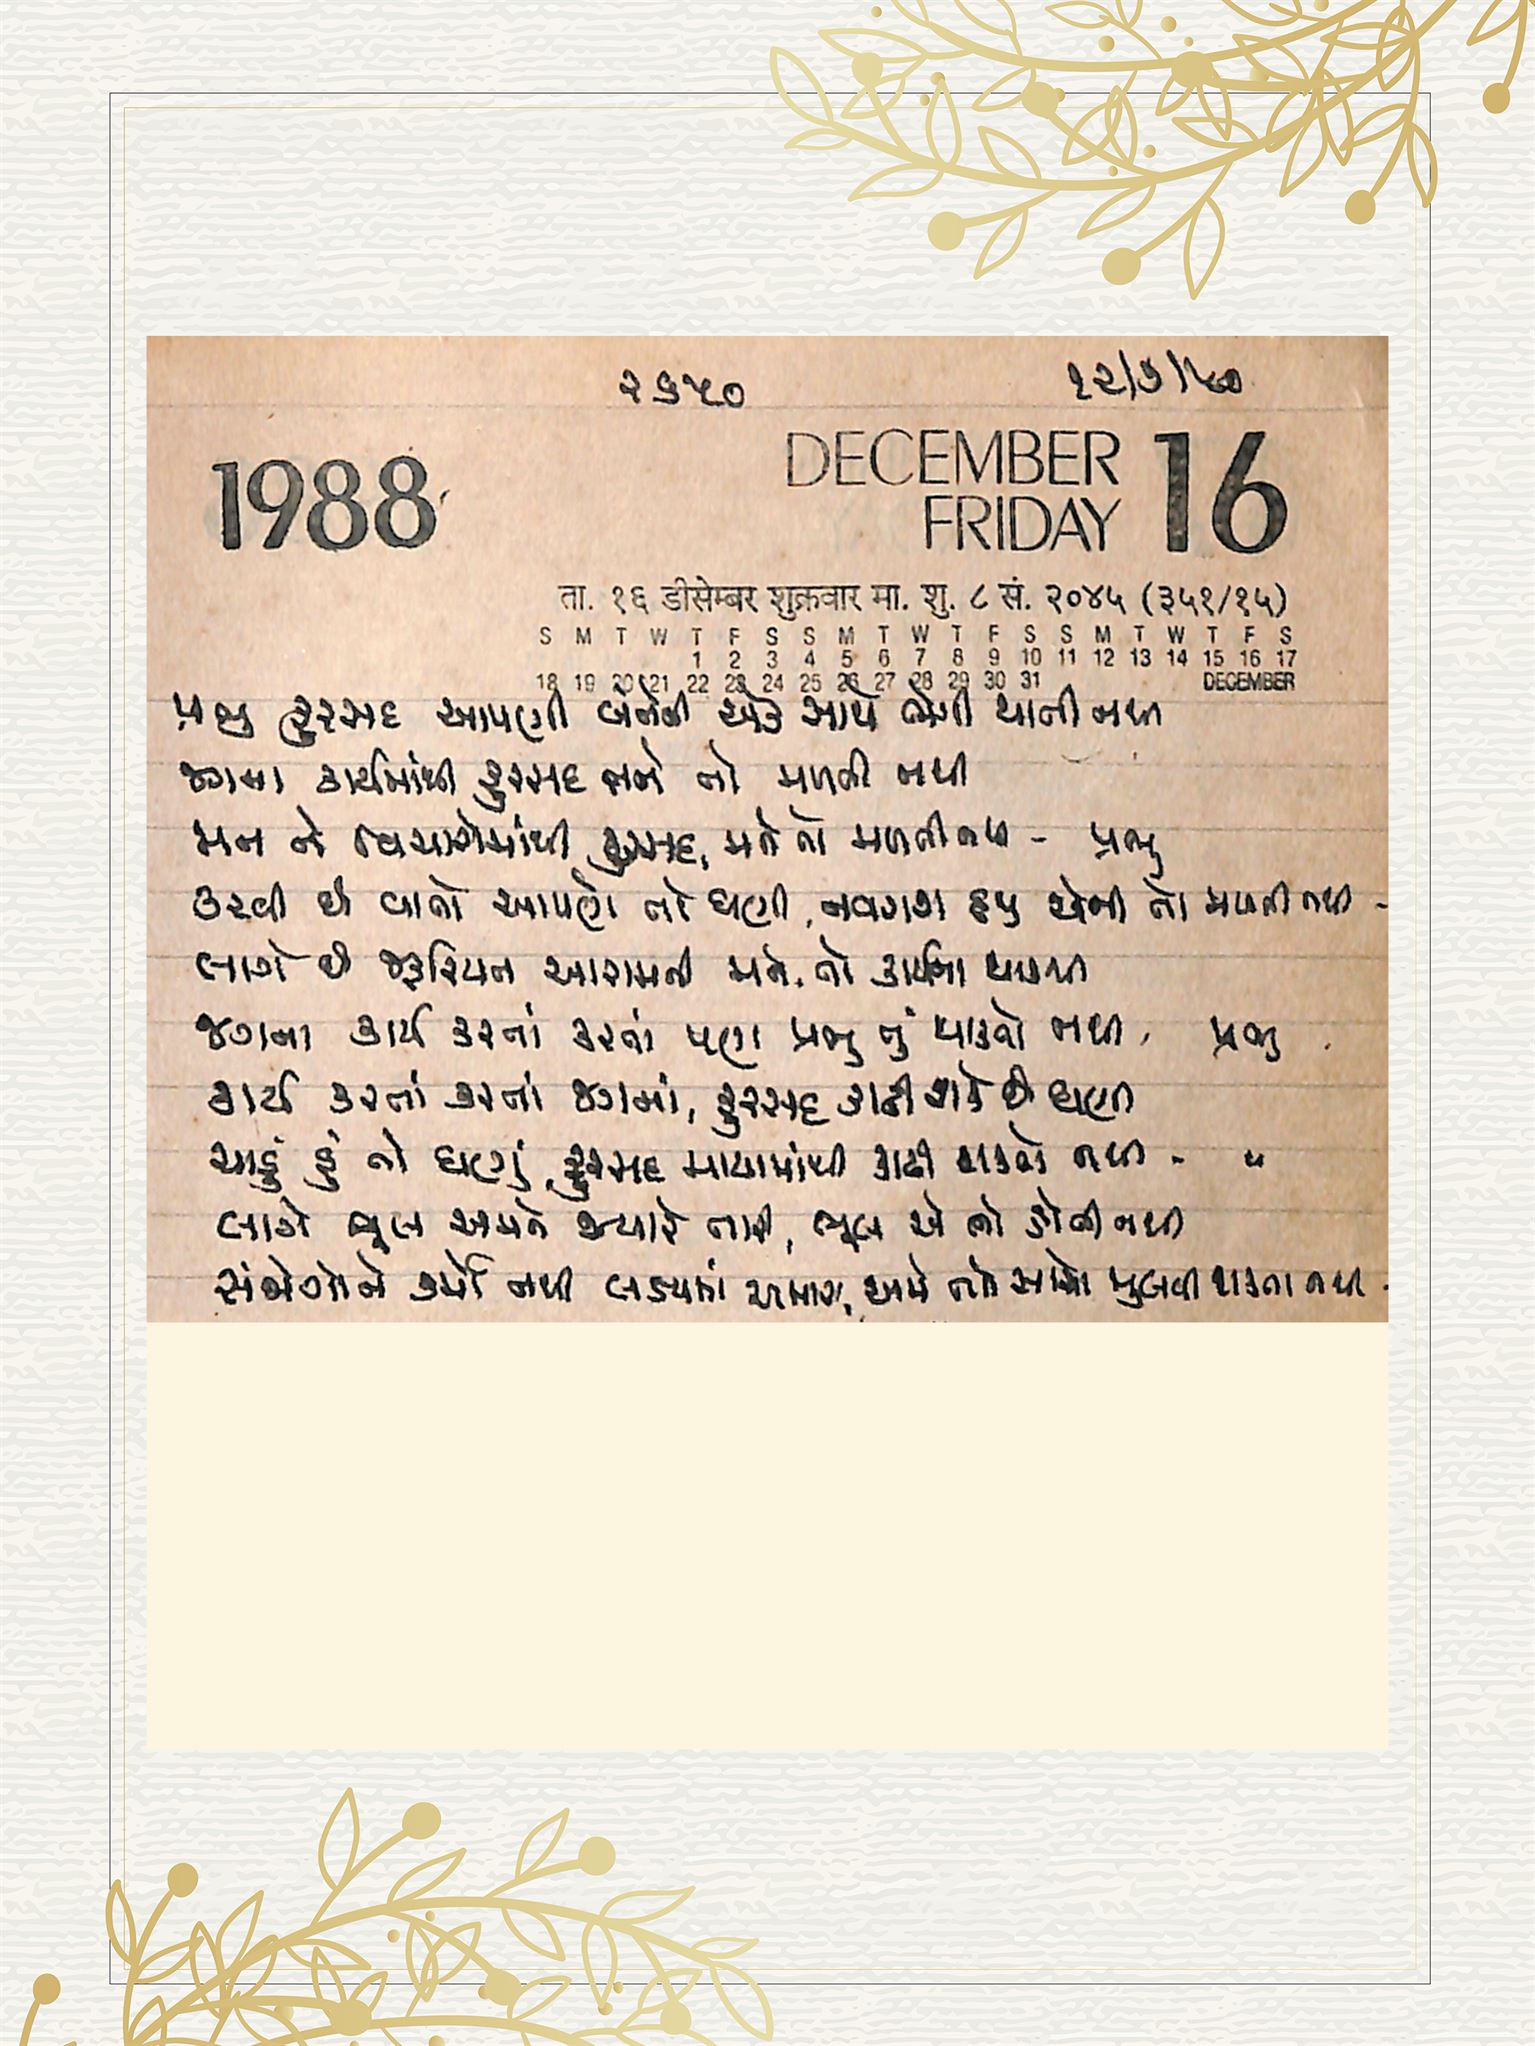 ૨૬૫૦
1988
DECEMBER 16
FRIDAY
ता. १६ डीसेम्बर शुक्रवार मा. शु. ८ सं. २०४५ (३५१/१५)
S M T W T F S S M T W T F S S M T W T F S
1 2 3 4 5 6 7 8 9 10 11 12 13 14 15 16 17
18 19 20 21 22 23 24 25 26 27 28 29 30 31 DECEMBER
પ્રભુ ફુરસદ આપણી બંનેની એક સાથે ભેગી થાતી નથી
જગના કાર્યમાંથી ફુરસદ મને તો મળતી નથી
મન ને વિચારોમાંથી ફુરસદ, મને તો મળતી નથી - પ્રભુ
કરવી છે વાતો આપણે તો ઘણી, તો મળતી નથી -
લાગે છે જરૂરિયત આરામની મને, તો
જગના કાર્ય કરતાં કરતાં પણ પ્રભુ તું થાકતો નથી, પ્રભુ
કાર્ય કરતાં કરતાં જગમાં, ફુરસદ કાઢી શકે છે ઘણી
ચાહું હું તો ઘણું, ફુરસદ માયામાંથી કાઢી શકતો નથી - "
લાગે ભૂલ અમને જ્યારે તારી, ભૂલ એ તો હોતી નથી
સંજોગોને કર્મો નથી લક્ષ્યમાં અમારા, અમે તને સાથે ભુલવી શકતા નથી